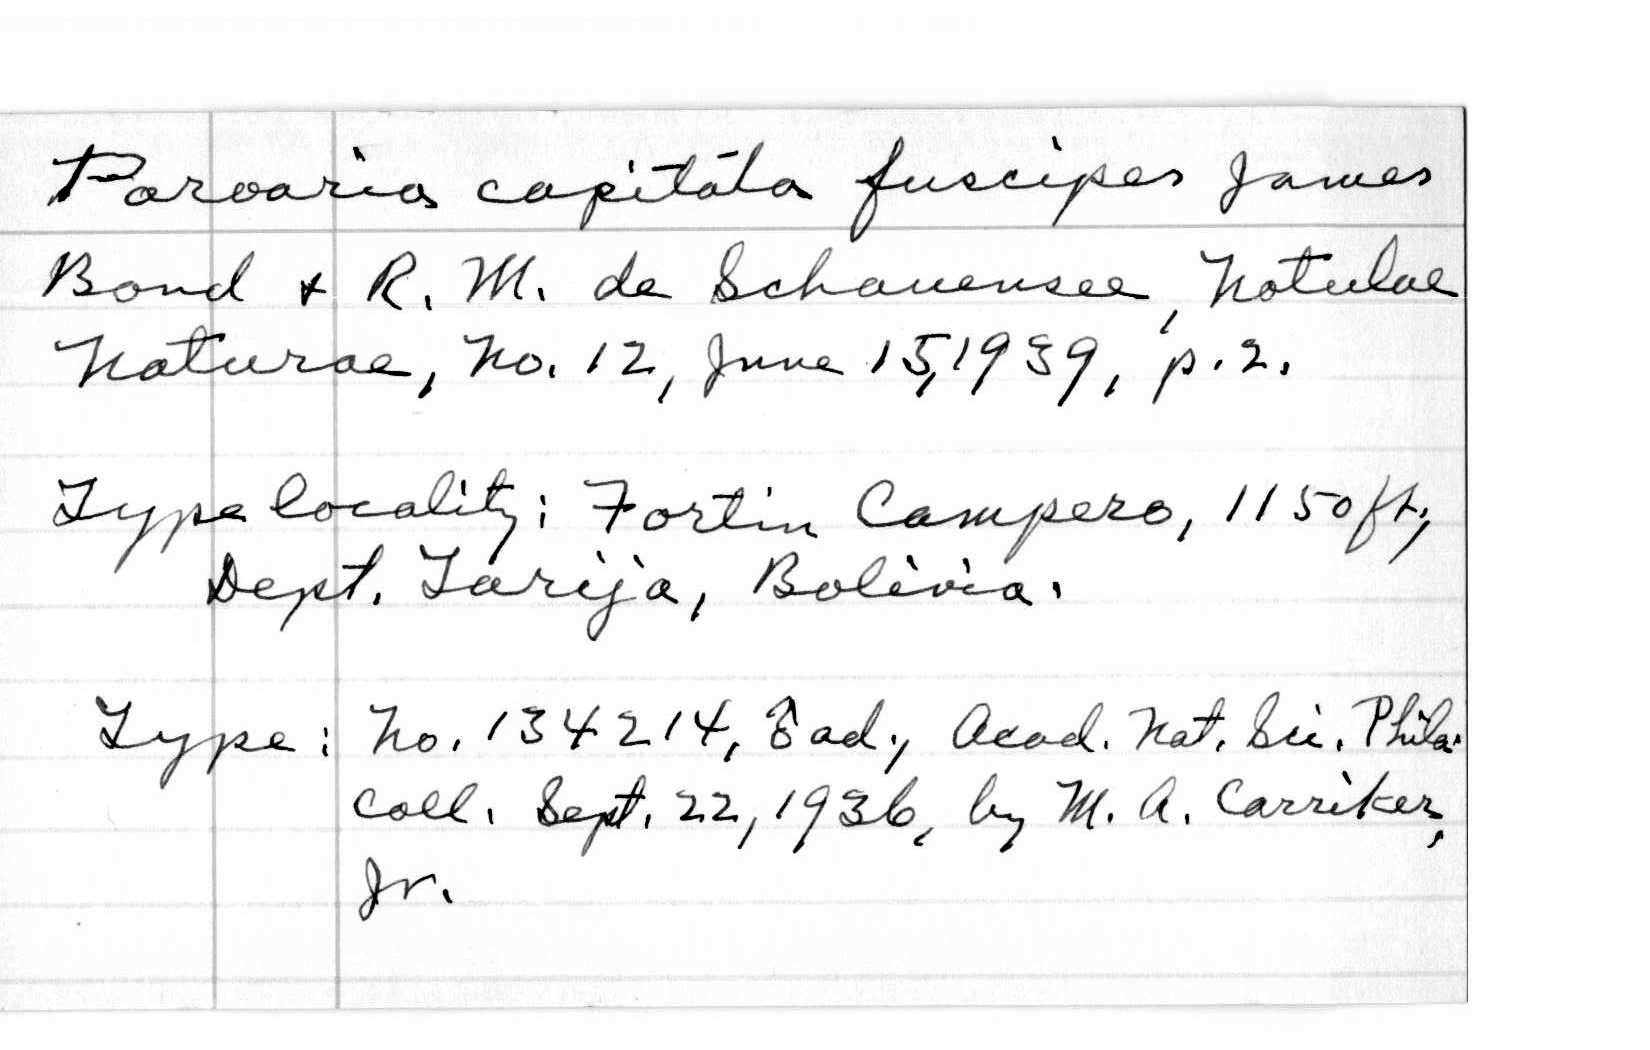 Paroaria capitata fuscipes James
Bond & R. M. de Schauensee, Notulae
Naturae, No. 12, June 15, 1939, p. 2.
Type locality: Fortin Campero, 1150 ft.,
Dept. Tarija, Bolivia.
Type: No. 134214, ♂ ad., Acad. Nat. Sci. Phila.
Coll. Sept. 22, 1936, by M. A. Carriker,
Jr.